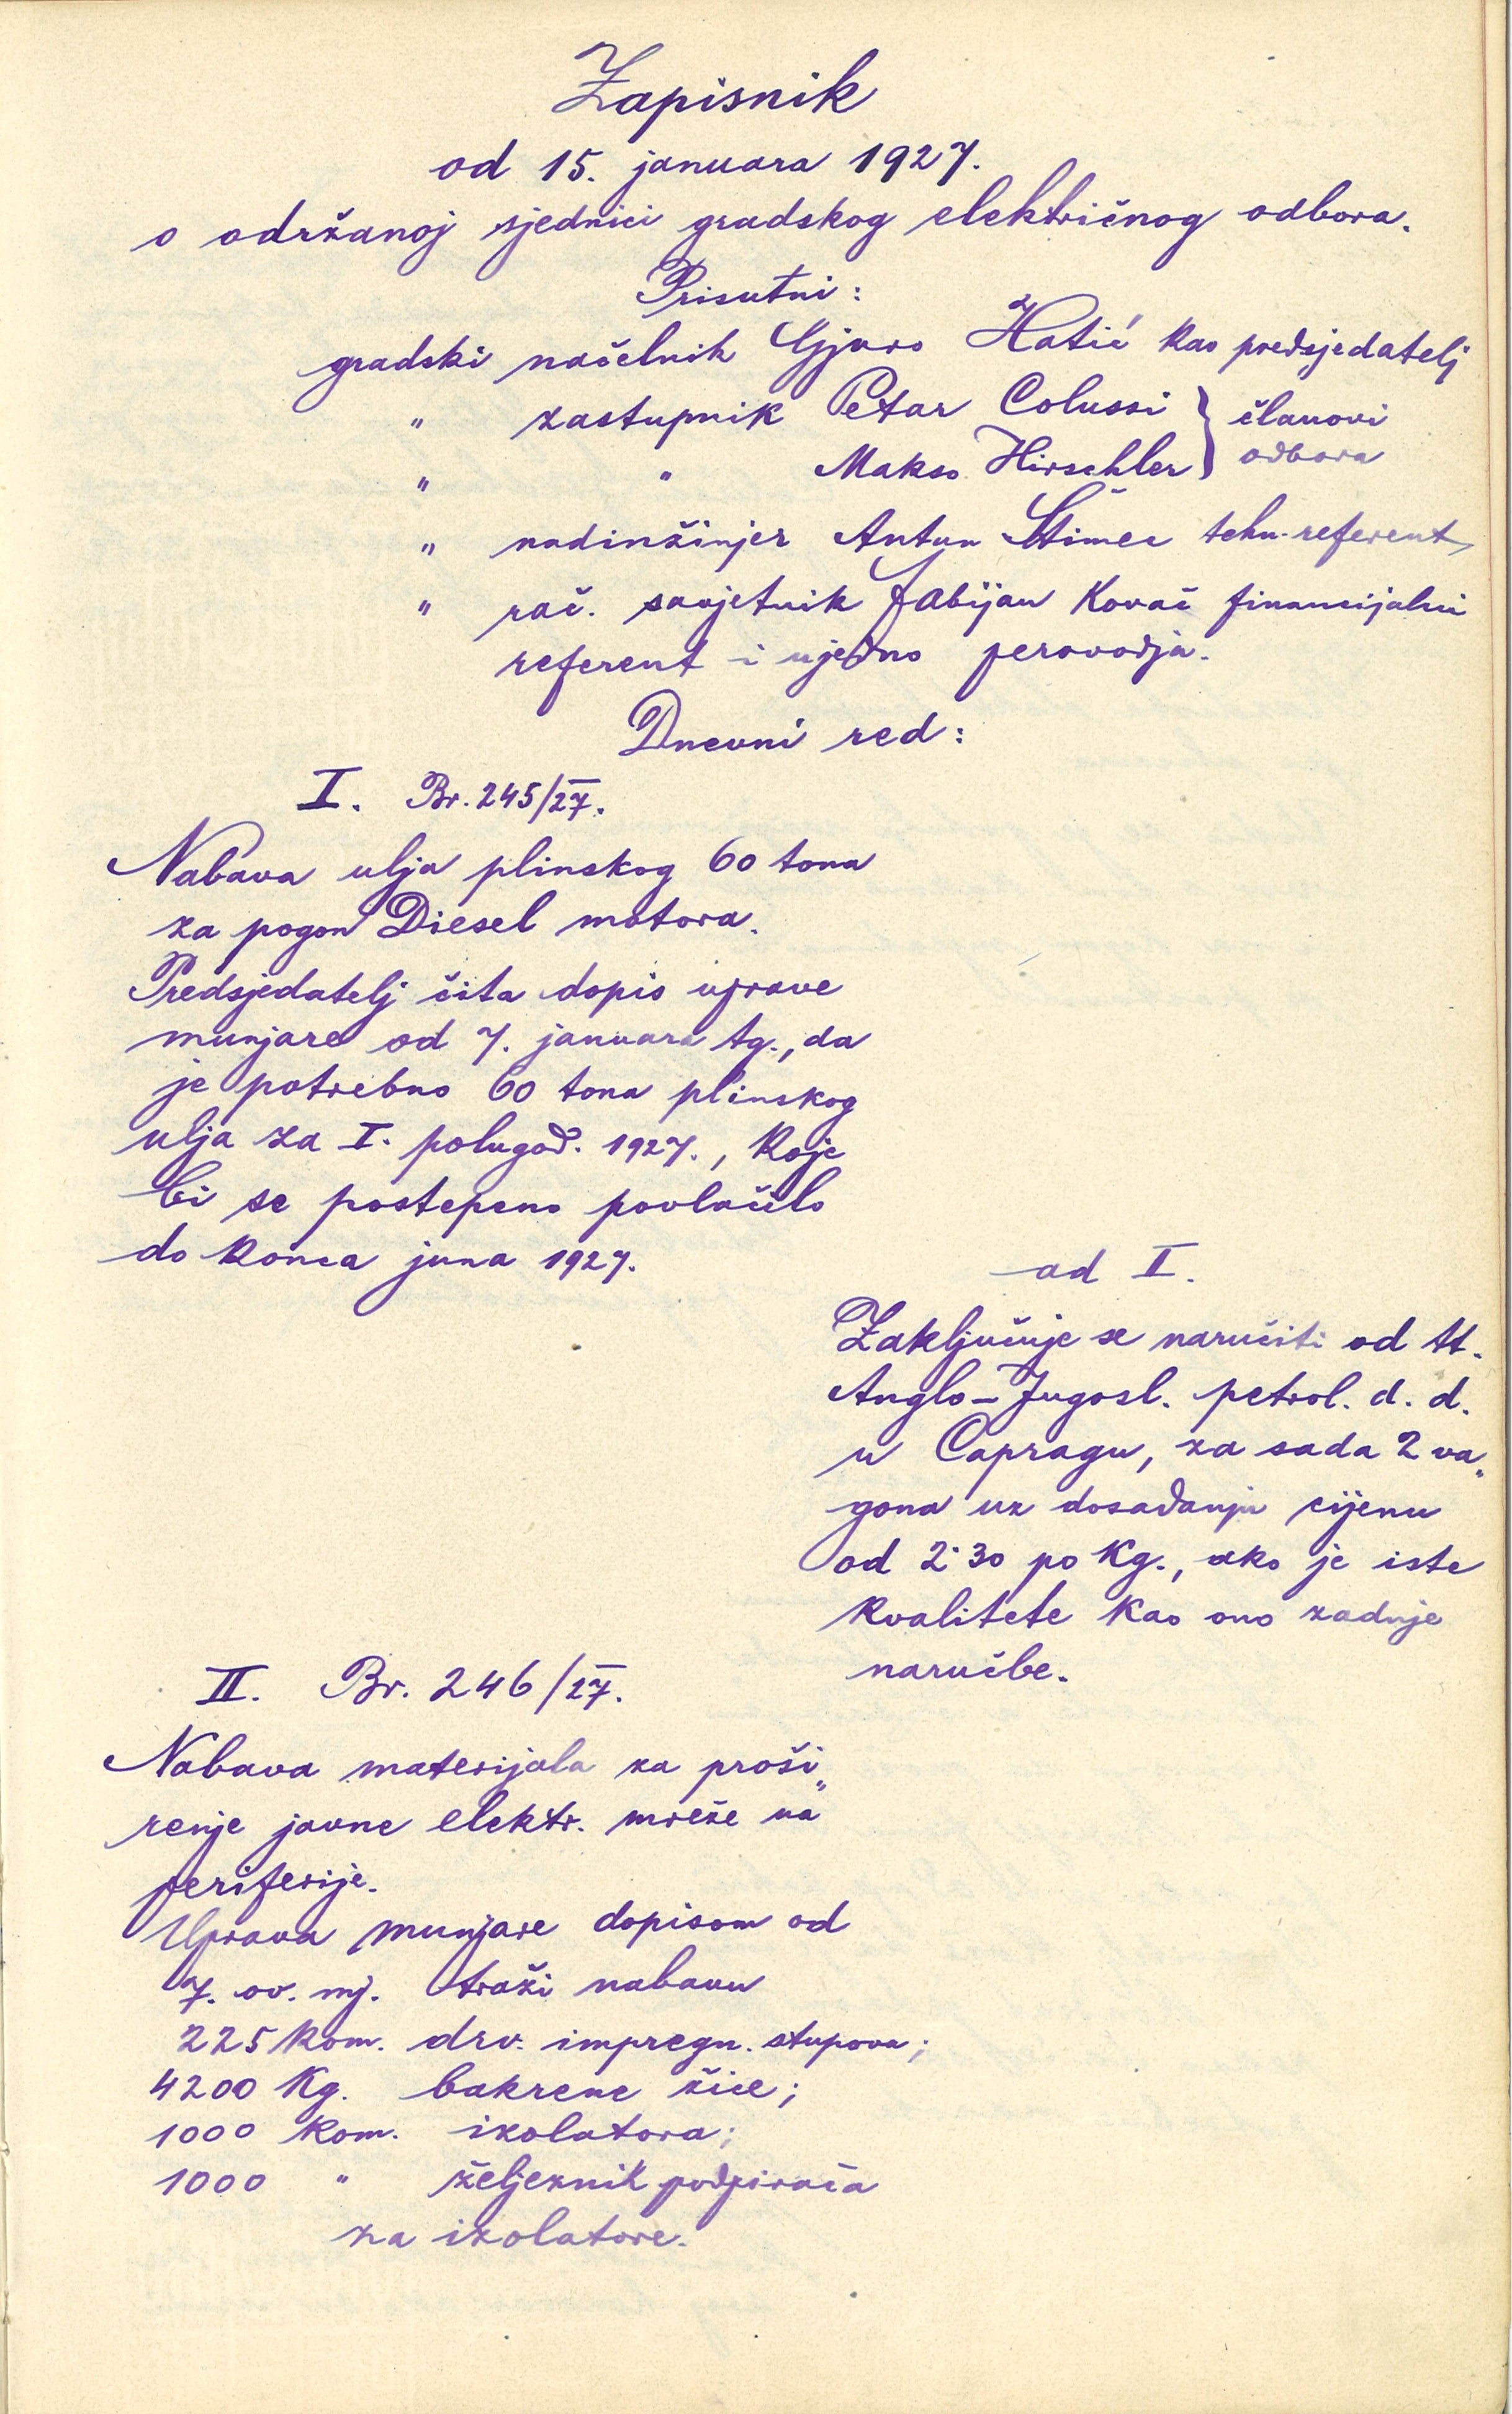 Zapisnik
od 15. januara 1927.
o održanoj sjednici gradskog električnog odbora.
Prisutni:
gradski načelnik Gjuro Hatić kao predsjedatelj
" zastupnik Petar Colussi } članovi
" " Makso Hirschler } odbora
" nadinžinjer Antun Štimec tehn. referent
" rač. savjetnik Fabijan Kovač financijalni
referent i ujedno perovodja.
Dnevni red:
I. Br. 245/27.
Nabava ulja plinskog 60 tona
za pogon Diesel motora.
Predsjedatelj čita dopis uprave
munjare od 7. januara tg., da
je potrebno 60 tona plinskog
ulja za I. polugod. 1927., koje
bi se postepeno povlačilo
do konca juna 1927.
ad I.
Zaključuje se naručiti od tt.
Anglo-Jugosl. petrol. d. d.
u Capragu, za sada 2 va„
gona uz dosadanju cijenu
od 2·30 po Kg., ako je iste
kvalitete kao ono zadnje
naručbe.
II. Br. 246/27.
Nabava materijala za proši„
renje javne elektr. mreže na
periferije.
Uprava munjare dopisom od
7. ov. mj. traži nabavu
225 kom. drv. impregn. stupova;
4200 Kg. bakrene žice;
1000 kom. izolatora;
1000 " željeznih podpirača
za izolatore.